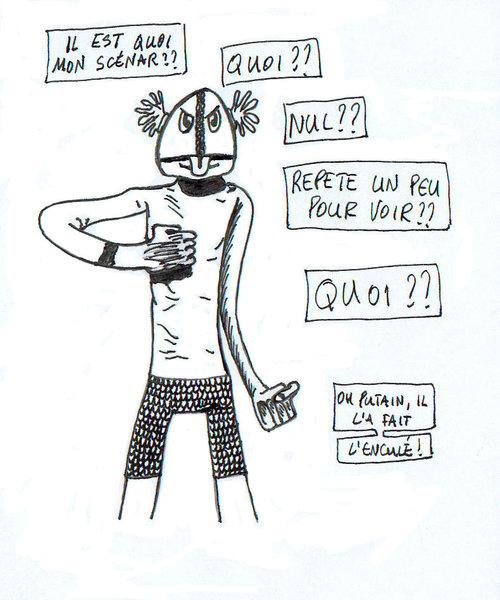 IL EST QUOI
MON SCÉNAR??
QUOI??
NUL??
REPETE UN PEU
POUR VOIR??
QUOI??
OH PUTAIN, IL
L'A FAIT
L'ENCULÉ!